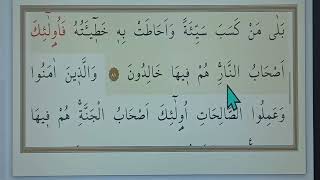 بَلٰى مَنْ كَسَبَ سَيِّئَةً وَاَحَاطَتْ بِه۪ خَط۪ٓيـَٔتُهُ فَاُو۬لٰٓئِكَ
اَصْحَابُ النَّارِۚ هُمْ ف۪يهَا خَالِدُونَ ﴿٨١﴾ وَالَّذ۪ينَ اٰمَنُوا
وَعَمِلُوا الصَّالِحَاتِ اُو۬لٰٓئِكَ اَصْحَابُ الْجَنَّةِۚ هُمْ ف۪يهَا